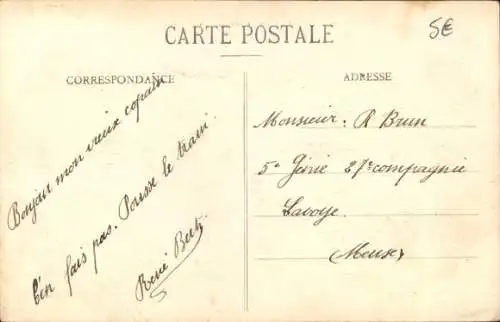 CARTE POSTALE
5€
CORRESPONDANCE
ADRESSE
Bonjour mon vieux copain
T'en fais pas. Pousse le train.
René Bertz
Monsieur : R Brun
5e Génie 27e compagnie
Lavoye.
(Meuse)